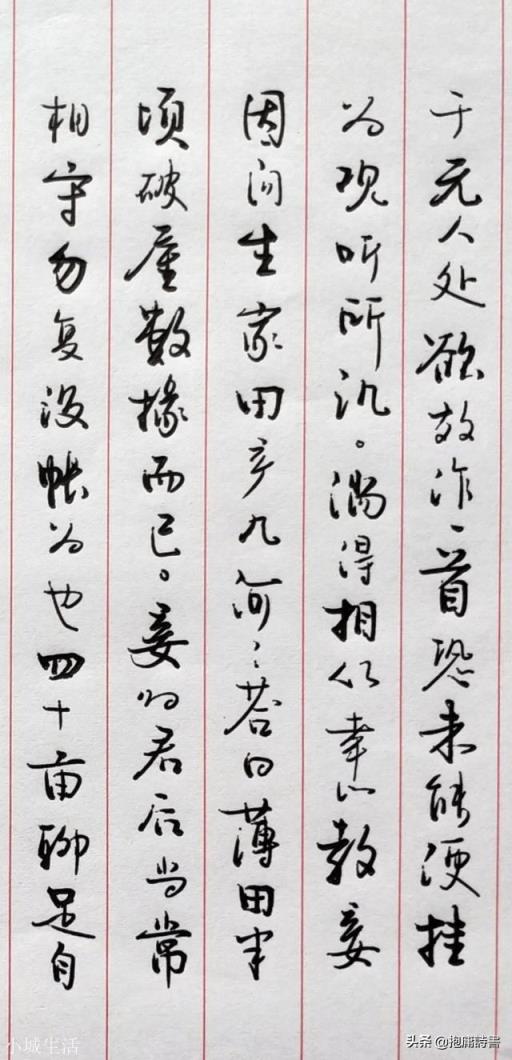 于无人处欲效作一首恐未能便佳
为观听所讥。倘得相从幸以教妾
因问生家田产几何、答曰薄田半
顷破屋数椽而已。妾归君后当常
相守勿复设帐为也四十亩聊足自
小城生活
头条 @抱膝诗书